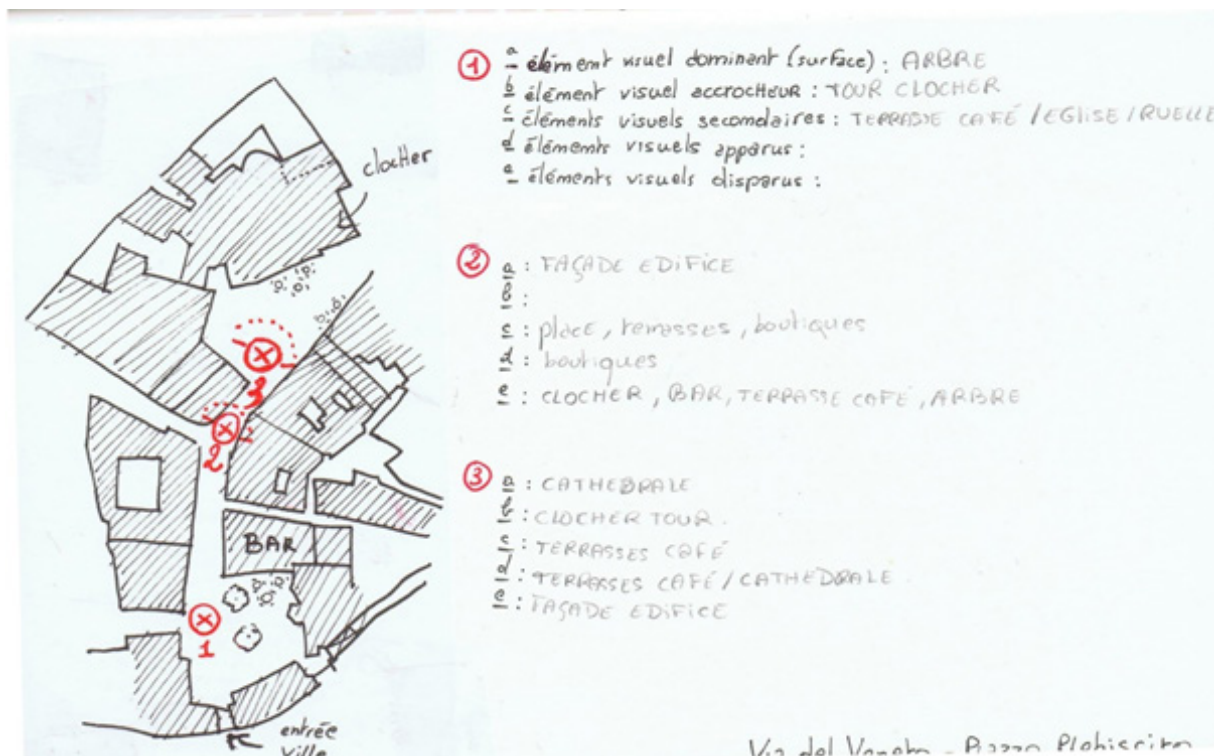 clocher
BAR
1
2
3
entrée
ville
① a élément visuel dominant (surface) : ARBRE
b élément visuel accrocheur : TOUR CLOCHER
c éléments visuels secondaires : TERRASSE CAFÉ / EGLISE / RUELLE
d éléments visuels apparus :
e éléments visuels disparus :
② a : FAÇADE EDIFICE
b :
c : place, terrasses, boutiques
d : boutiques
e : CLOCHER, BAR, TERRASSE CAFÉ, ARBRE
③ a : CATHEDRALE
b : CLOCHER TOUR.
c : TERRASSES CAFÉ
d : TERRASSES CAFÉ / CATHEDRALE
e : FAÇADE EDIFICE
Via del